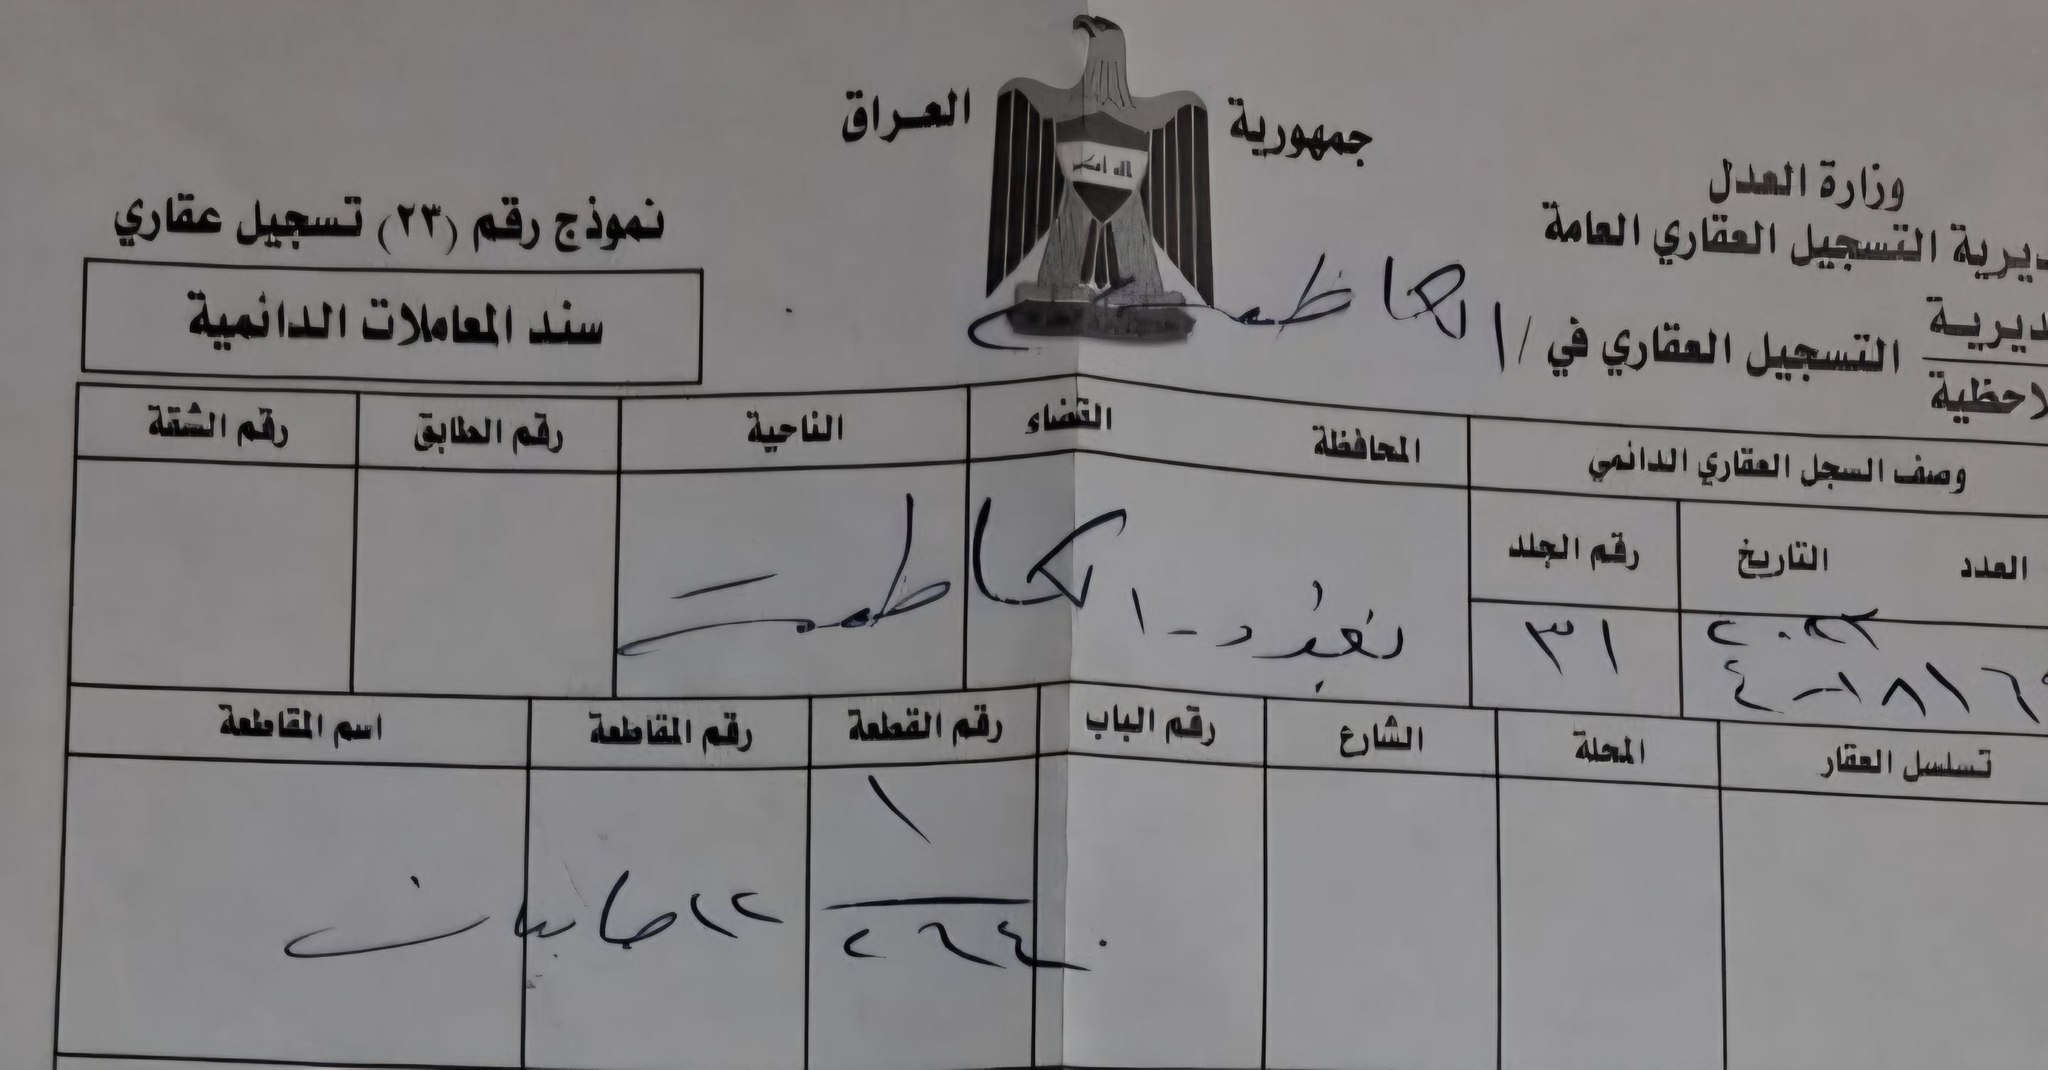 جمهورية العراق
وزارة العدل
ديرية التسجيل العقاري العامة
ديرية
لاحظية
التسجيل العقاري في / الكاظمية
نموذج رقم (٢٣) تسجيل عقاري
سند المعاملات الدائمية
وصف السجل العقاري الدائمي المحافظة القضاء الناحية رقم الطابق رقم الشقة
العدد التاريخ رقم الجلد
٣١ بغداد - الكاظمية
تسلسل العقار المحلة الشارع رقم الباب رقم القطعة رقم المقاطعة اسم المقاطعة
١
٢٦٤٠ ٢٢